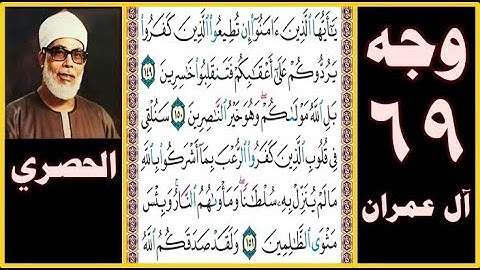 وجه
٦٩
آل عمران
يَٰٓأَيُّهَا ٱلَّذِينَ ءَامَنُوٓا۟ إِن تُطِيعُوا۟ ٱلَّذِينَ كَفَرُوا۟
يَرُدُّوكُمْ عَلَىٰٓ أَعْقَٰبِكُمْ فَتَنقَلِبُوا۟ خَٰسِرِينَ ١٤٩
بَلِ ٱللَّهُ مَوْلَىٰكُمْ ۖ وَهُوَ خَيْرُ ٱلنَّٰصِرِينَ ١٥٠ سَنُلْقِى
فِى قُلُوبِ ٱلَّذِينَ كَفَرُوا۟ ٱلرُّعْبَ بِمَآ أَشْرَكُوا۟ بِٱللَّهِ
مَا لَمْ يُنَزِّلْ بِهِۦ سُلْطَٰنًا ۖ وَمَأْوَىٰهُمُ ٱلنَّارُ ۚ وَبِئْسَ
مَثْوَى ٱلظَّٰلِمِينَ ١٥١ وَلَقَدْ صَدَقَكُمُ ٱللَّهُ
الحصري